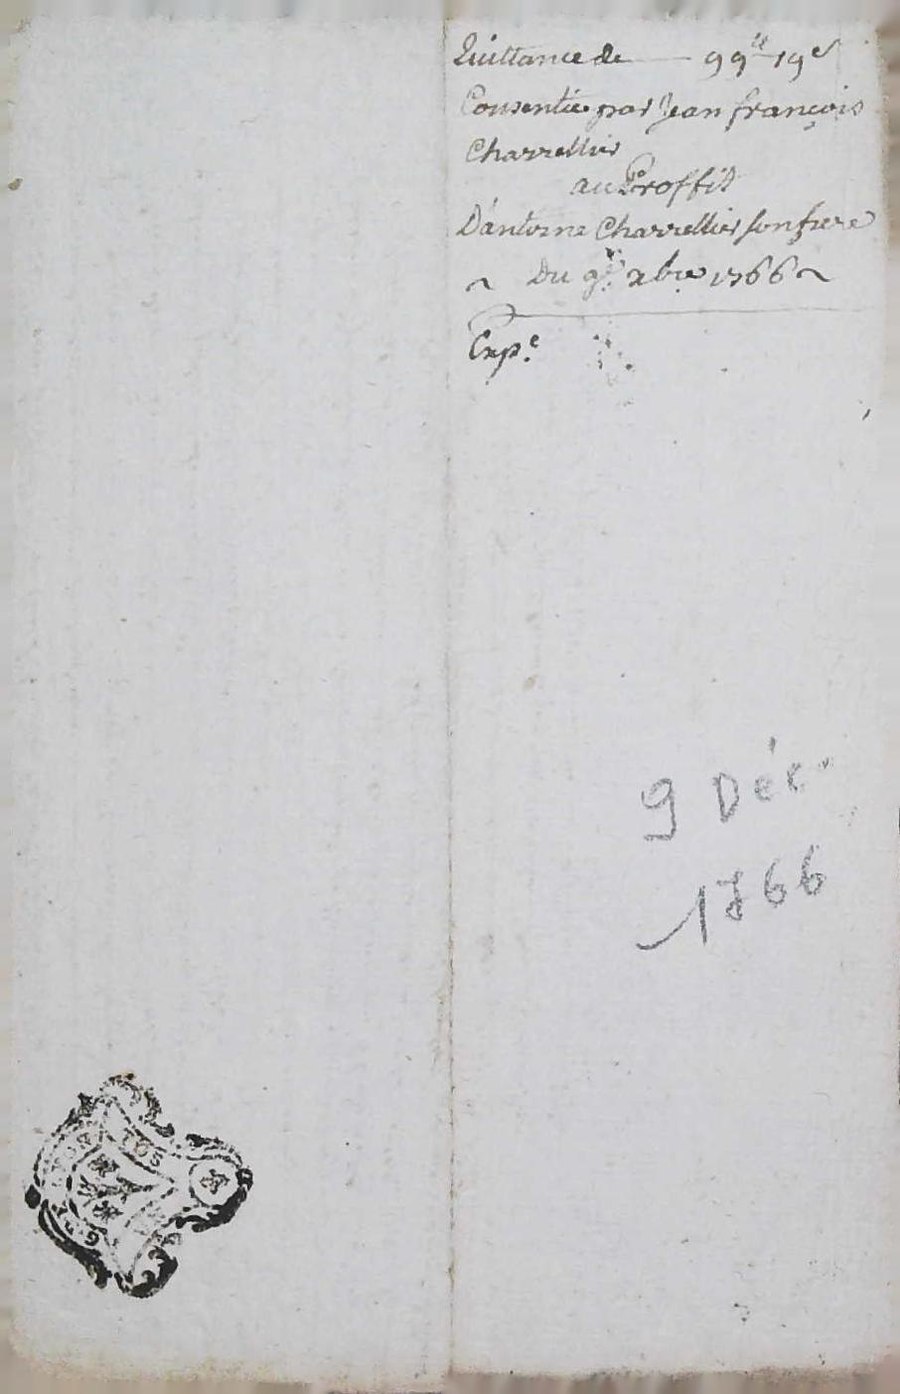 Quittance de — 99ᵗᵗ 19ˢ
Consentie par Jean françois
Charrellier
au Proffit
D'antoine Charrellier son frere
~ Du 9ᵉ xbre 1766 ~
Expᵉ.
9 Déc.
1766